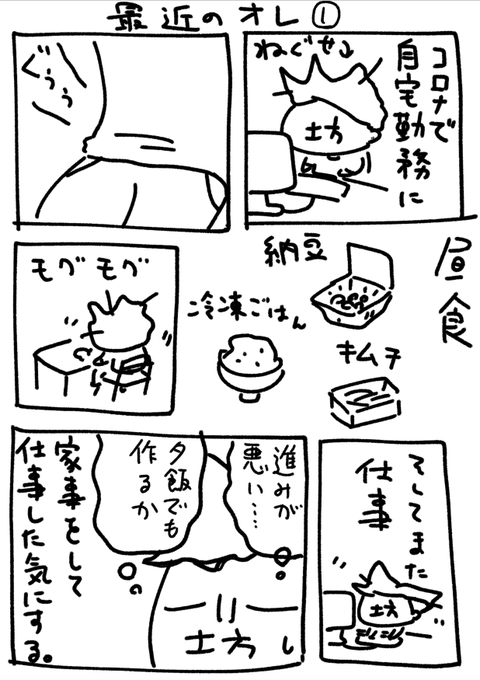 最近のオレ①
コロナで
自宅勤務に
ねぐせ↓
土方
ぐぅぅ
昼食
納豆
冷凍ごはん
キムチ
モグモグ
そしてまた
仕事
土方
進みが
悪い…
夕飯でも
作るか
土方
家事をして
仕事した気にする。